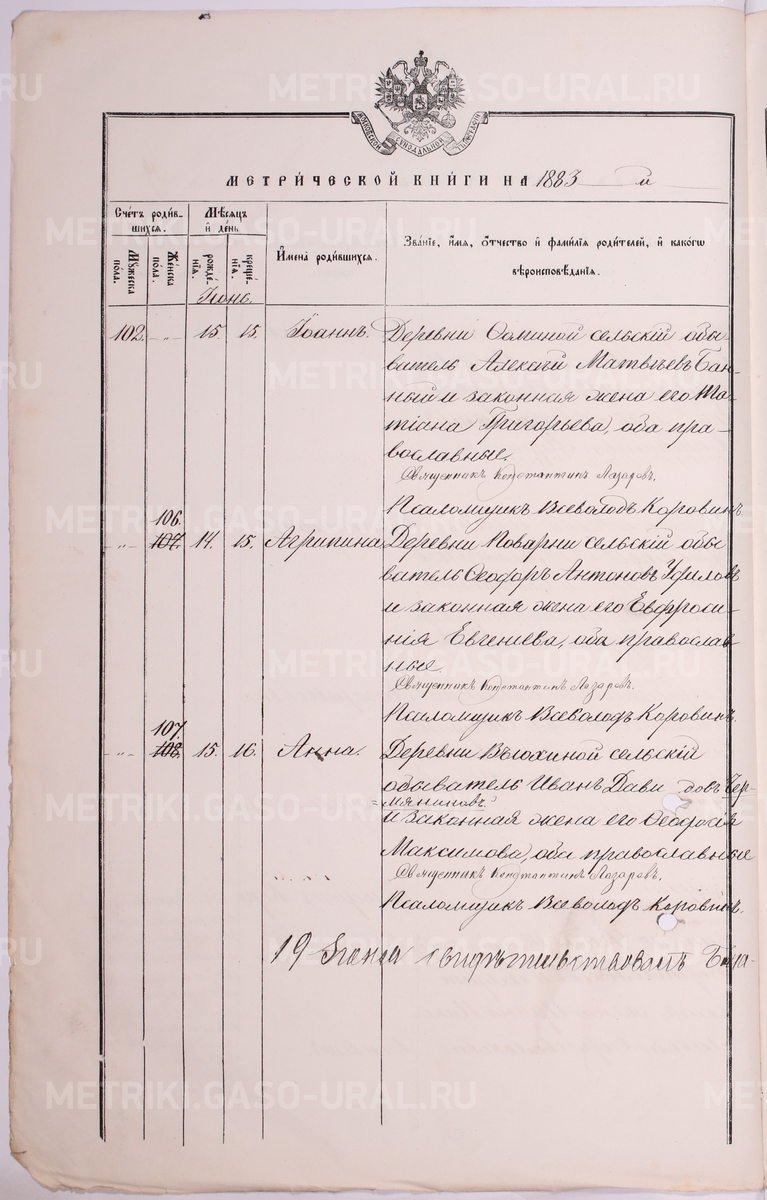 METRIKI.GASO-URAL.RU
МОСКОВСКОЙ СѴНОДАЛЬНОЙ ТИПОГРАФІИ
МЕТРИ́ЧЕСКОЙ КНИ́ГИ НА 1883 й
Сче́тъ роди́в-
шихся.
Мѣ́сяцъ
и҆ де́нь
Мꙋ́жеска
по́ла.
Же́нска
по́ла.
рожде́-
нїѧ.
креще́-
нїѧ.
И҆мена̀ роди́вшихсѧ.
Зва́нїе, и҆́мѧ, ѻ҆́тчество и҆ фамѝлїѧ роди́телей, и҆ како́гѡ
вѣроисповѣ́данїѧ.
Іюнь.
102. „ 15. 15. Іоаннъ. Деревни Осминой сельскій обы-
ватель Алексій Матвѣевъ Бан-
ный и законная жена его Та-
тіана Григорьева, оба пра-
вославные.
Священникъ Константинъ Лазаровъ.
Псаломщикъ Всеволодъ Коровинъ
106.
„ 107. 14. 15. Агрипина. Деревни Поварни сельскій обы
ватель Ѳеодоръ Антоновъ Уфиловъ
и законная жена его Евфроси-
нія Евгеніева, оба православ
ные.
Священникъ Константинъ Лазаровъ.
Псаломщикъ Всеволодъ Коровинъ.
107.
„ 108. 15. 16. Анна. Деревни Вьюхиной сельскій
обыватель Иванъ Давидовъ Чер-
мяниновъ
и законная жена его Ѳеодосія
Максимова, оба православные
Священникъ Константинъ Лазаровъ.
Псаломщикъ Всеволодъ Коровинъ.
19